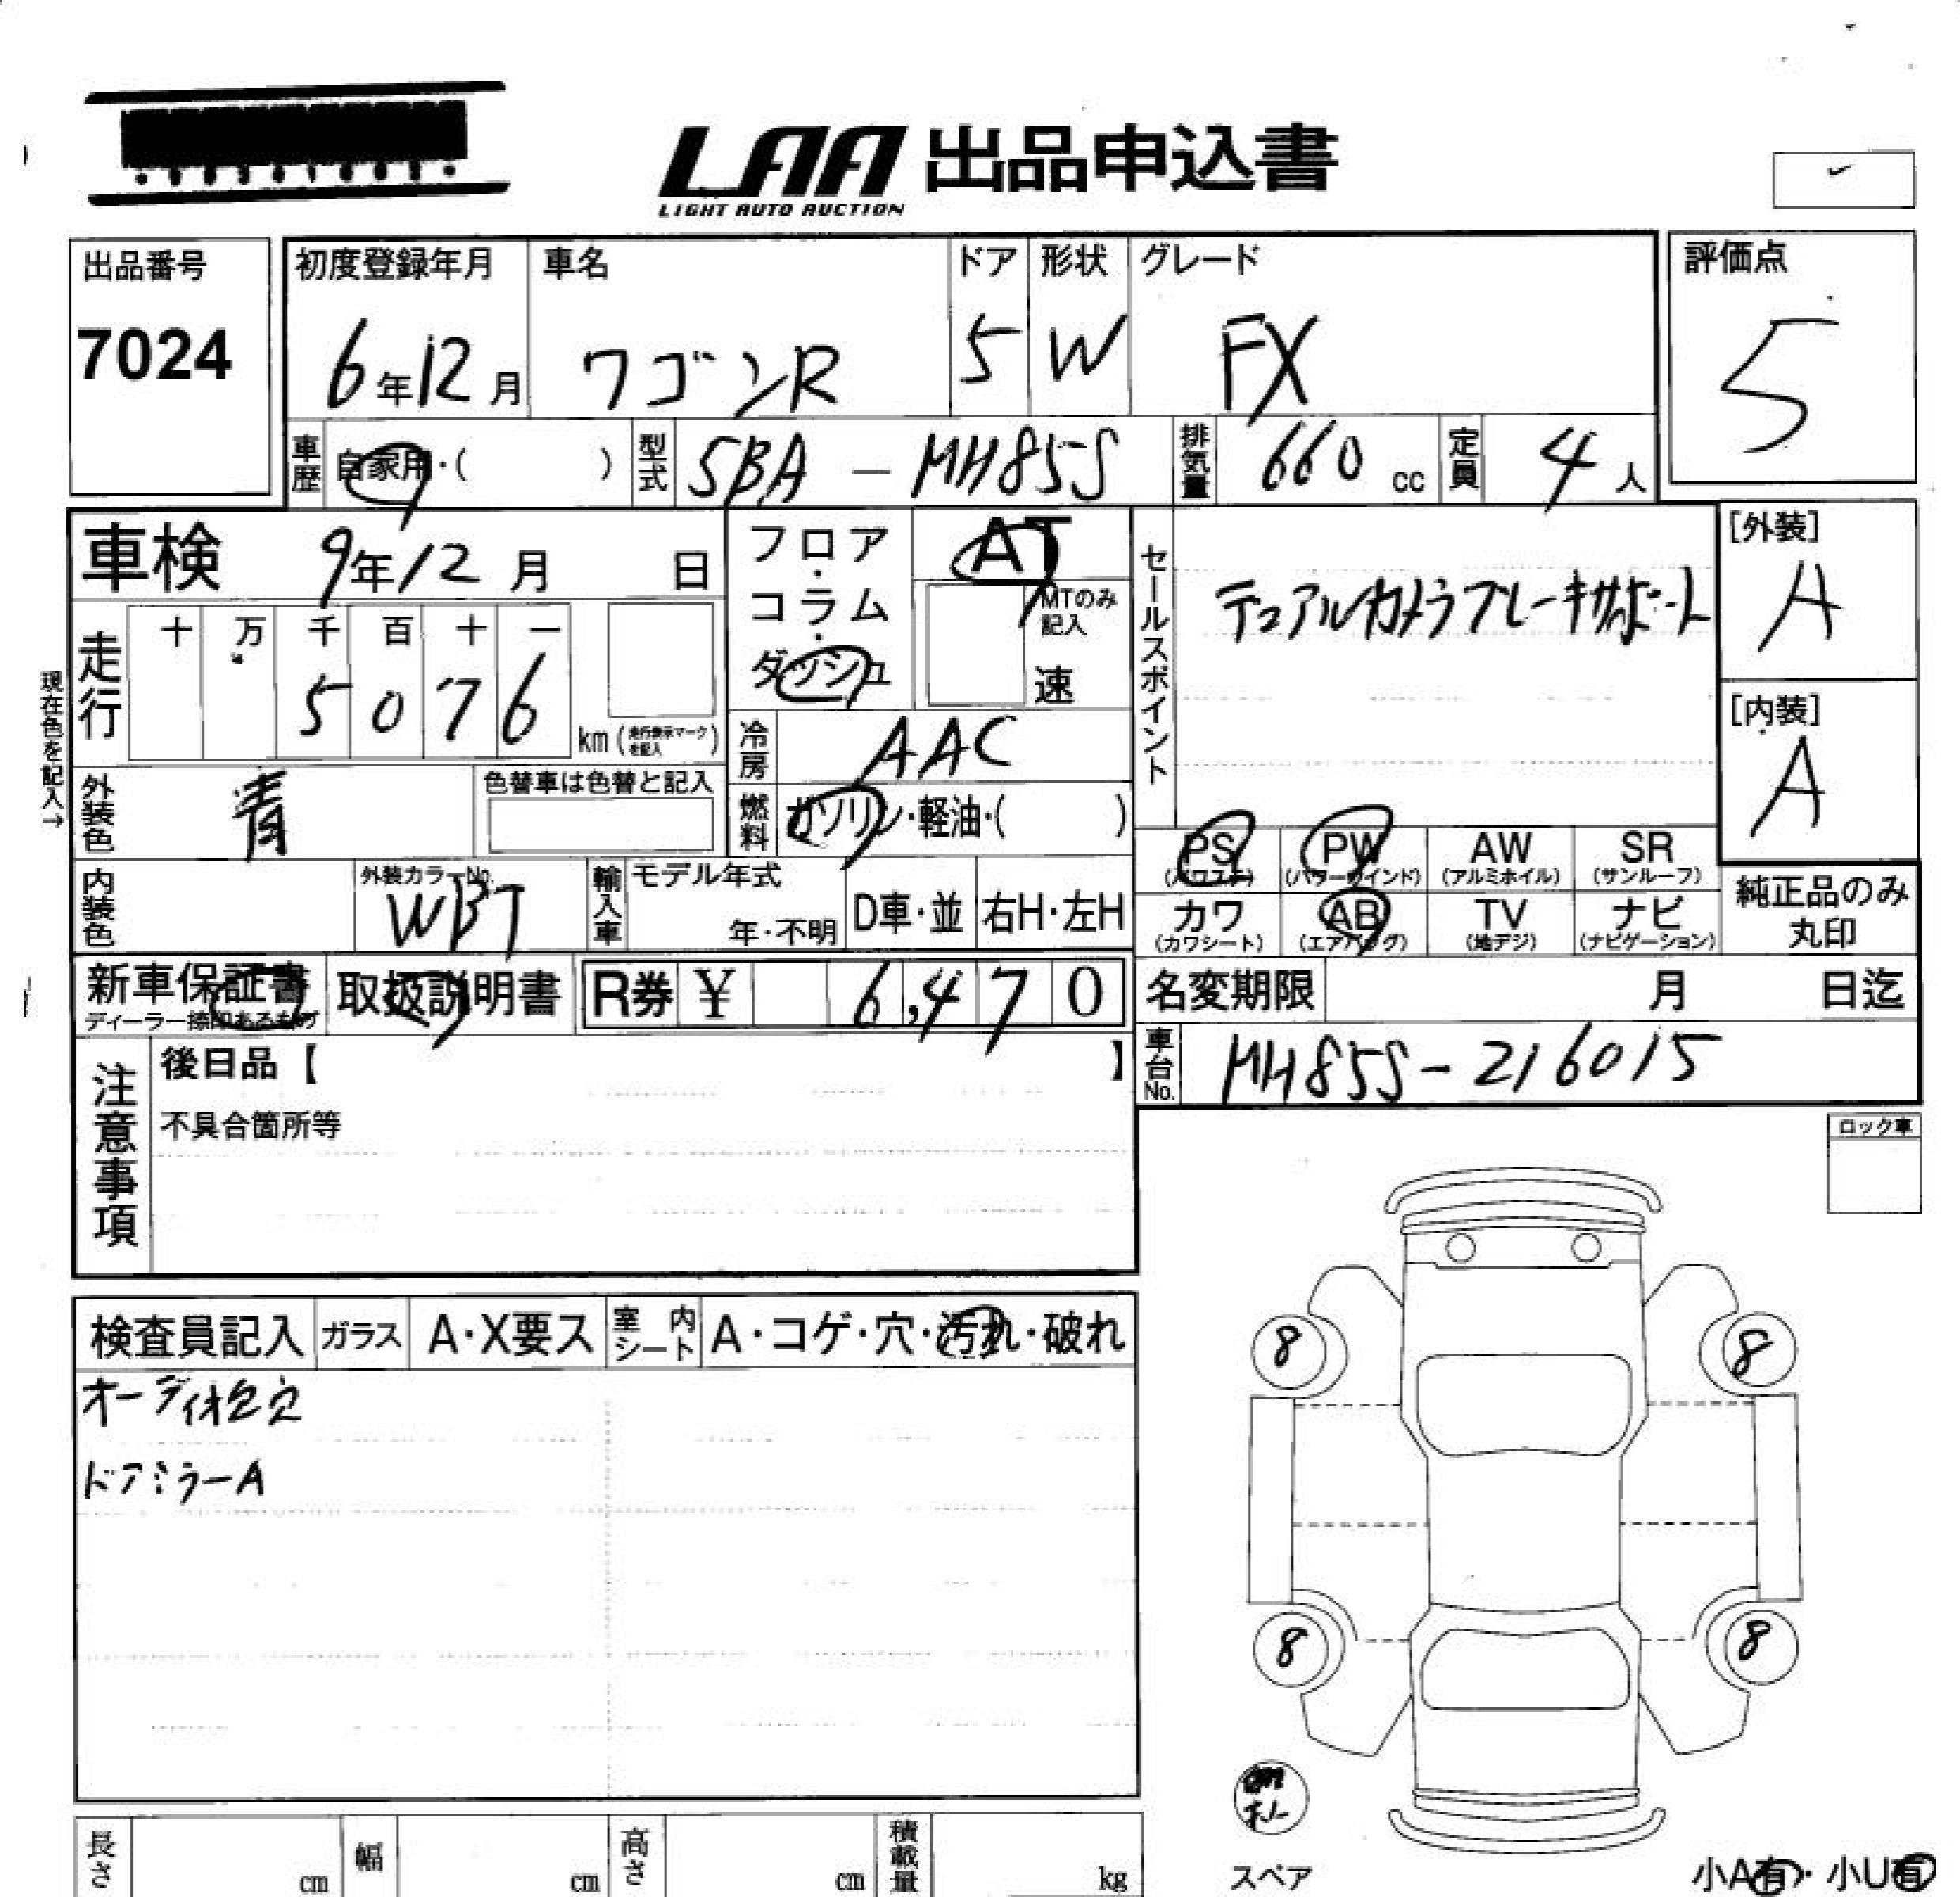 LAA 出品申込書
LIGHT AUTO AUCTION
出品番号
7024
初度登録年月
6年12月
車名
ワゴンR
ドア
5
形状
W
グレード
FX
評価点
5
車歴 自家用・( )
型式 5BA - MH85S
排気量 660 cc
定員 4人
車検 9年12月 日
フロア・コラム・ダッシュ
AT
MTのみ記入
速
セールスポイント
デュアルカメラブレーキサポート
[外装]
A
[内装]
A
現在色を記入→
走行
十 万 千 百 十 一
5 0 7 6
km (走行表示マークを記入)
冷房 AAC
外装色 青
色替車は色替と記入
燃料 ガソリン・軽油・( )
PS (パワステ)
PW (パワーウインド)
AW (アルミホイル)
SR (サンルーフ)
内装色
外装カラーNo.
WBT
輸入車
モデル年式
年・不明
D車・並
右H・左H
カワ (カワシート)
AB (エアバッグ)
TV (地デジ)
ナビ (ナビゲーション)
純正品のみ
丸印
新車保証書
ディーラー捺印あるもの
取扱説明書
R券 ¥ 6,470
名変期限 月 日迄
注意事項
後日品【 】
不具合箇所等
車台No. MH85S-216015
ロック車
検査員記入
ガラス A・X要ス
室内シート A・コゲ・穴・汚れ・破れ
オーディオ欠穴
ドアミラーA
8 8
8 8
スペア
長さ cm
幅 cm
高さ cm
積載量 kg
小A有・小U有